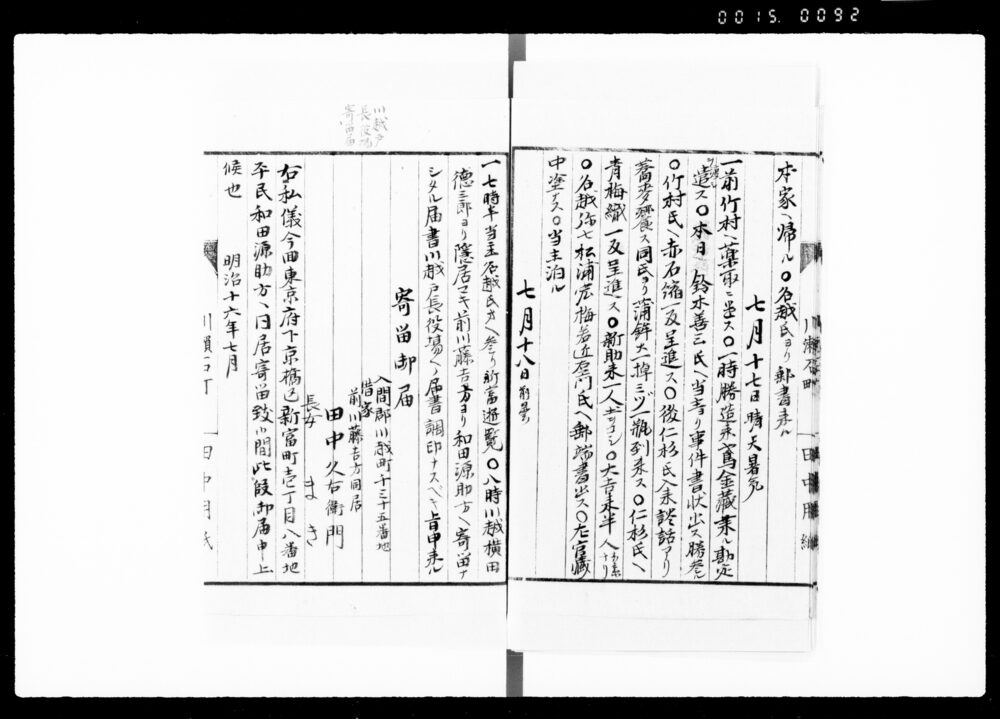 0015. 0092
本家ヘ帰ル〇名越氏ヨリ郵書来ル
七月十七日 晴天暑気
一前竹村ヘ薬取ニ出ス〇一時勝造来鳶金蔵来ル勘定
遣ス〇本日 鈴木善三氏ヘ当寺リ事件書状出ス勝
〇竹村氏ヘ赤石縮一反呈進ス〇後仁杉氏入来談話アリ
蕎麦饗ス同氏ヨリ蒲鉾大一掉ミヅ一瓶到来ス〇仁杉氏ヘ
青梅織一反呈進ス〇新助来一人〇大吉来半人
〇名越弥七松浦宏梅若近左門氏ヘ郵端書出ス〇左官蔵
中塗ナス〇当主泊ル
七月十八日
川越戸
長役場
寄留届
一七時半当主名越氏方ヘ参リ新富遊覧〇八時川越横田
徳三郎ヨリ隠居マキ前川藤吉方ヨリ和田源助方ヘ寄留ナ
シタル届書川越戸長役場ヘノ届書調印ナスベキ旨申来ル
寄留御届
入間郡川越町千三十五番地
借家
前川藤吉方同居
田中久右衛門
長女 まき
右私儀今回東京府下京橋区新富町壱丁目八番地
平民和田源助方ヘ同居寄留致候間此段御届申上
候也 明治十六年七月